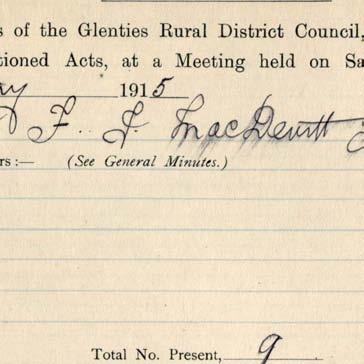 s of the Glenties Rural District Council,
tioned Acts, at a Meeting held on Sa
ry 1915
F. J. MacDevitt
rs :— (See General Minutes.)
Total No. Present, 9